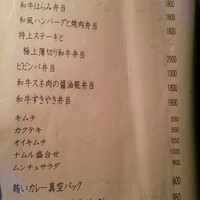 和牛はらみ弁当 1800
和風ハンバーグと焼肉弁当 1800
特上ステーキと
極上薄切り和牛弁当 2900
ビビンバ弁当 1000
和牛スネ肉の醤油糀弁当 1800
和牛すきやき弁当 1800
キムチ 550
カクテキ 550
オイキムチ 550
ナムル盛合せ
ムンチュサラダ
賄いカレー真空パック 600
980